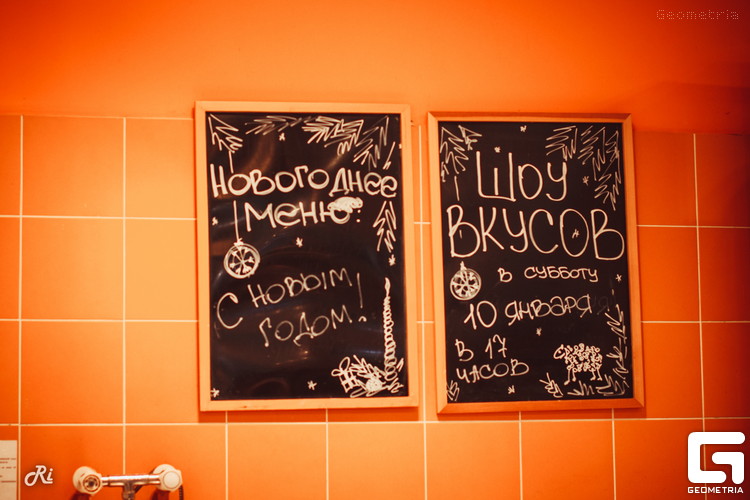 Geometria
НОВОГОДНЕЕ
МЕНЮ!
С НОВЫМ
ГОДОМ!
ШОУ
ВКУСОВ
В СУББОТУ
10 ЯНВАРЯ
В 17
ЧАСОВ
Ri
GEOMETRIA